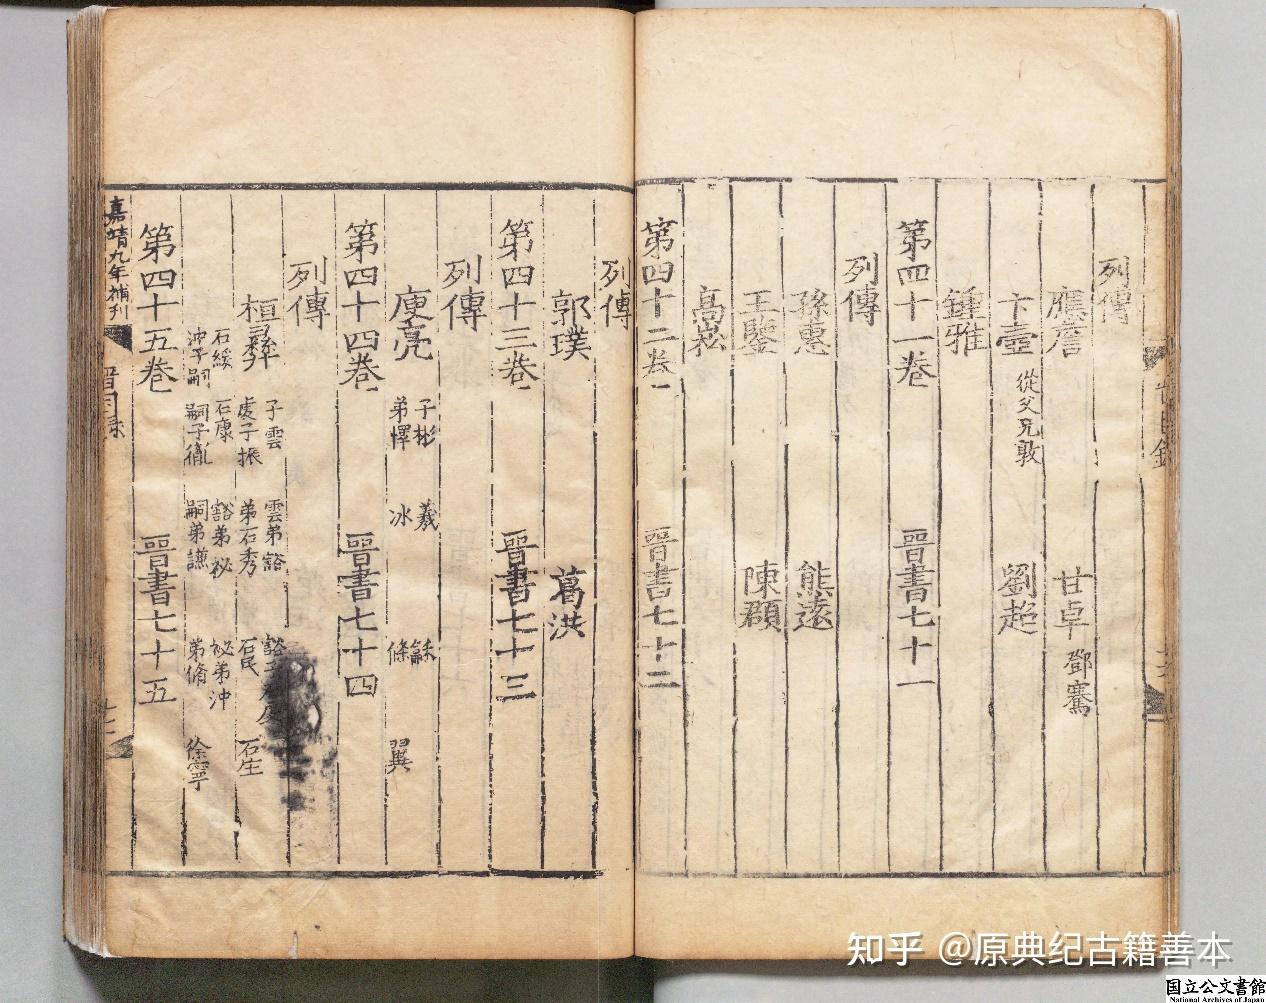 列傳
應詹 甘卓 鄧騫
卞壼 從父兄敦 劉超
鍾雅
第四十一卷 晉書七十一
列傳
孫惠 熊遠
王鑒 陳頵
高崧
第四十二卷 晉書七十二
列傳
郭璞 葛洪
第四十三卷 晉書七十三
列傳
庾亮 子彬 羲 龢
弟懌 冰 條 翼
第四十四卷 晉書七十四
列傳
桓彝 子雲 雲弟豁
虔子振 弟石秀 石民 石生
石綏 石康 豁弟祕 祕弟沖
沖子嗣 嗣子胤 嗣弟謙 弟脩 徐寧
第四十五卷 晉書七十五
嘉靖九年補刊
知乎 @原典纪古籍善本
国立公文書館
National Archives of Japan